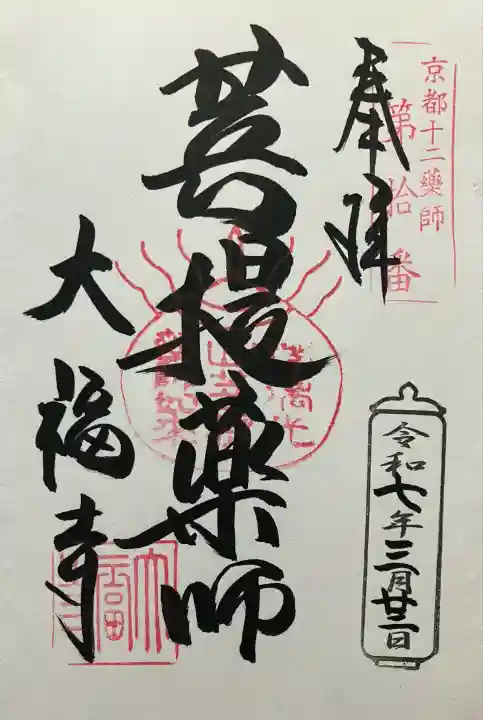 京都十二藥師
第拾番
奉拝
菩提薬師
大福寺
令和七年三月廿三日